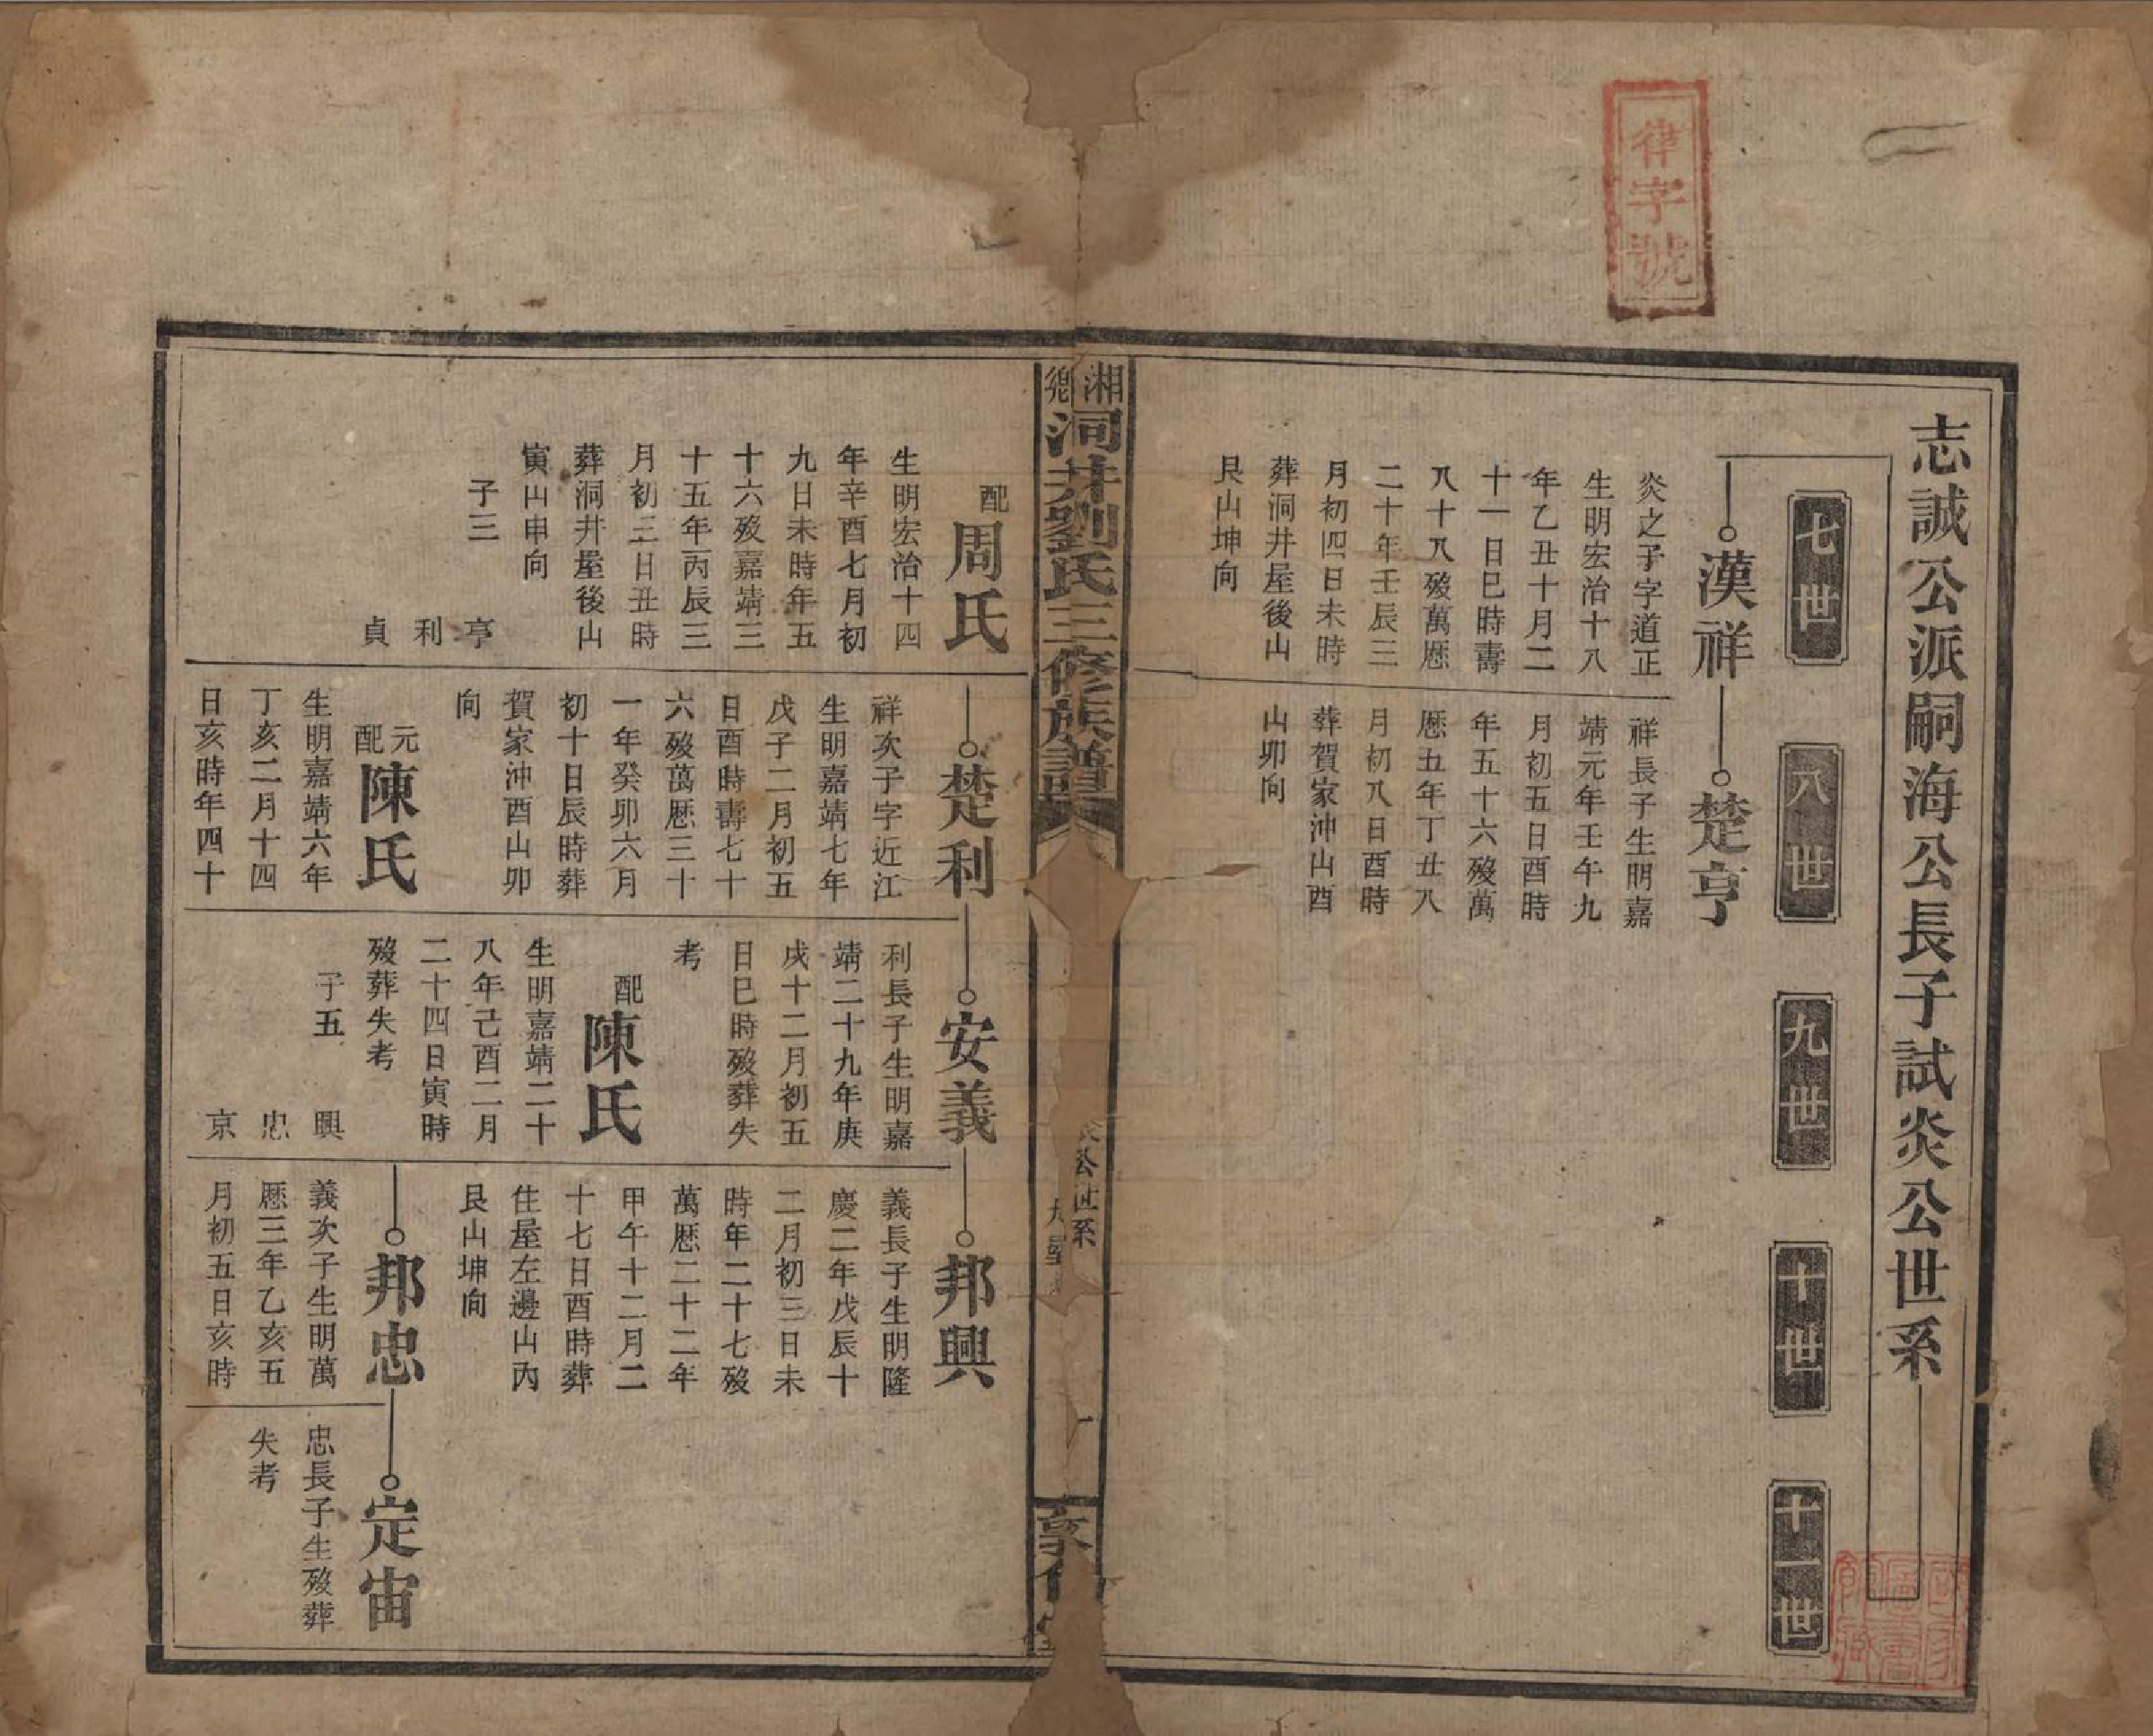 律字號
志誠公派嗣海公長子試炎公世系
七世
八世
九世
十世
十一世
漢祥
炎之子字道正
生明宏治十八
年乙丑十月二
十一日巳時壽
八十八殁萬厯
二十年壬辰三
月初四日未時
葬洞井屋後山
艮山坤向
楚亨
祥長子生明嘉
靖元年壬午九
月初五日酉時
年五十六殁萬
厯五年丁丑八
月初八日酉時
葬賀家沖山酉
山卯向
湘鄉洞井劉氏三修族譜
公世系
配周氏
生明宏治十四
年辛酉七月初
九日未時年五
十六殁嘉靖三
十五年丙辰三
月初三日丑時
葬洞井屋後山
寅山申向
子三
亨
利
貞
楚利
祥次子字近江
生明嘉靖七年
戊子二月初五
日酉時壽七十
六殁萬厯三十
一年癸卯六月
初十日辰時葬
賀家沖酉山卯
向
元配陳氏
生明嘉靖六年
丁亥二月十四
日亥時年四十
安義
利長子生明嘉
靖二十九年庚
戌十二月初五
日巳時殁葬失
考
配陳氏
生明嘉靖二十
八年己酉二月
二十四日寅時
殁葬失考
子五
興
忠
京
邦興
義長子生明隆
慶二年戊辰十
二月初三日未
時年二十七殁
萬厯二十二年
甲午十二月二
十七日酉時葬
住屋左邊山內
艮山坤向
邦忠
義次子生明萬
厯三年乙亥五
月初五日亥時
定宙
忠長子生殁葬
失考